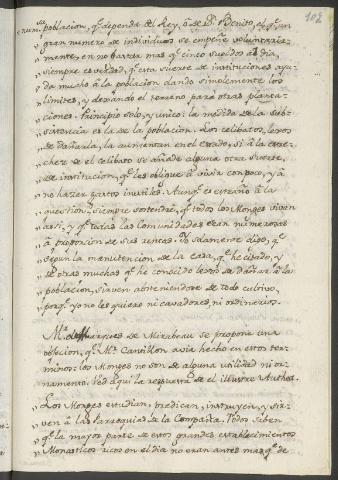 102
"num. poblacion, qe. dependa del Rey, ò de Sn. Benito, si qe. un
" gran numero de individuos se empeñe voluntaria-
" mente, en no gastar mas qe. cinco sueldos al dia,
" siempre es verdad, qe. esta suerte de instituciones ayu-
" da mucho à la poblacion dando simplemente los
" limites, y dexando el terreno para otras planta-
" ciones. Principio solo, y unico: la medida de la Sub-
" sistencia es la de la poblacion. Los celibatos, lexos
" de dañarla, la aumentan en el estado, si à la estre-
" chez de el celibato se añade alguna otra suerte,
" de institucion, qe. les obligue à vivir con poco, y à
" no hazer gastos inutiles. Aunqe. es extraño à la
" question, siempre sostendré, qe. todos los Monges vivan
" assi, y qe. todas las Comunidades eran numerosas
" à proporcion de sus rentas. Yo solamente digo, qe.
" segun la manutencion de la Casa, qe. he citado, y
" de otras muchas qe. he conocido lexos de dañar à la
" poblacion, sirven absteniendose de todo cultivo,
" porqe. yo no les quiero ni cavadores, ni ordinarios.
Mr. Marques de Mirabeau se propone una
objecion, qe. Mr. Cantillon avia hecho en estos ter-
minos: los Monges no son de alguna utilidad ni or-
namento. Ved aqui la respuesta de el illustre Author.
" Los Monges estudian, predican, instruyen, y sir-
" ven à las Parroquias de la Campaña. Todos saben
" qe. la mayor parte de estos grandes establecimientos
" Monasticos ricos en el dia no eran antes mas qe. de